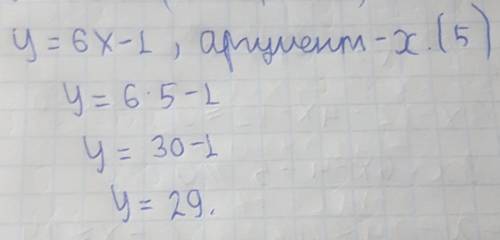 y = 6x-1, аргумент - x. (5)
y = 6·5-1
y = 30-1
y = 29.